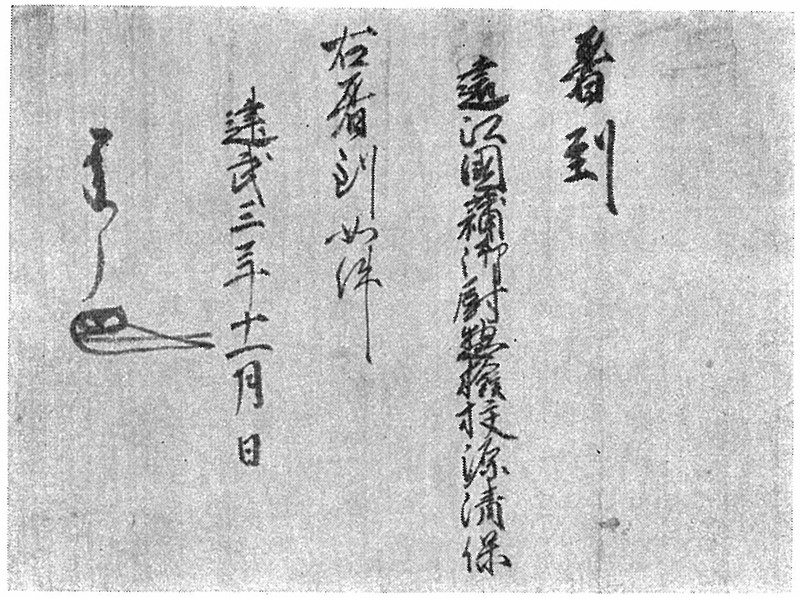 着到
遠江国蒲御厨惣検校源清保
右着到如件
建武三年十一月日
承了